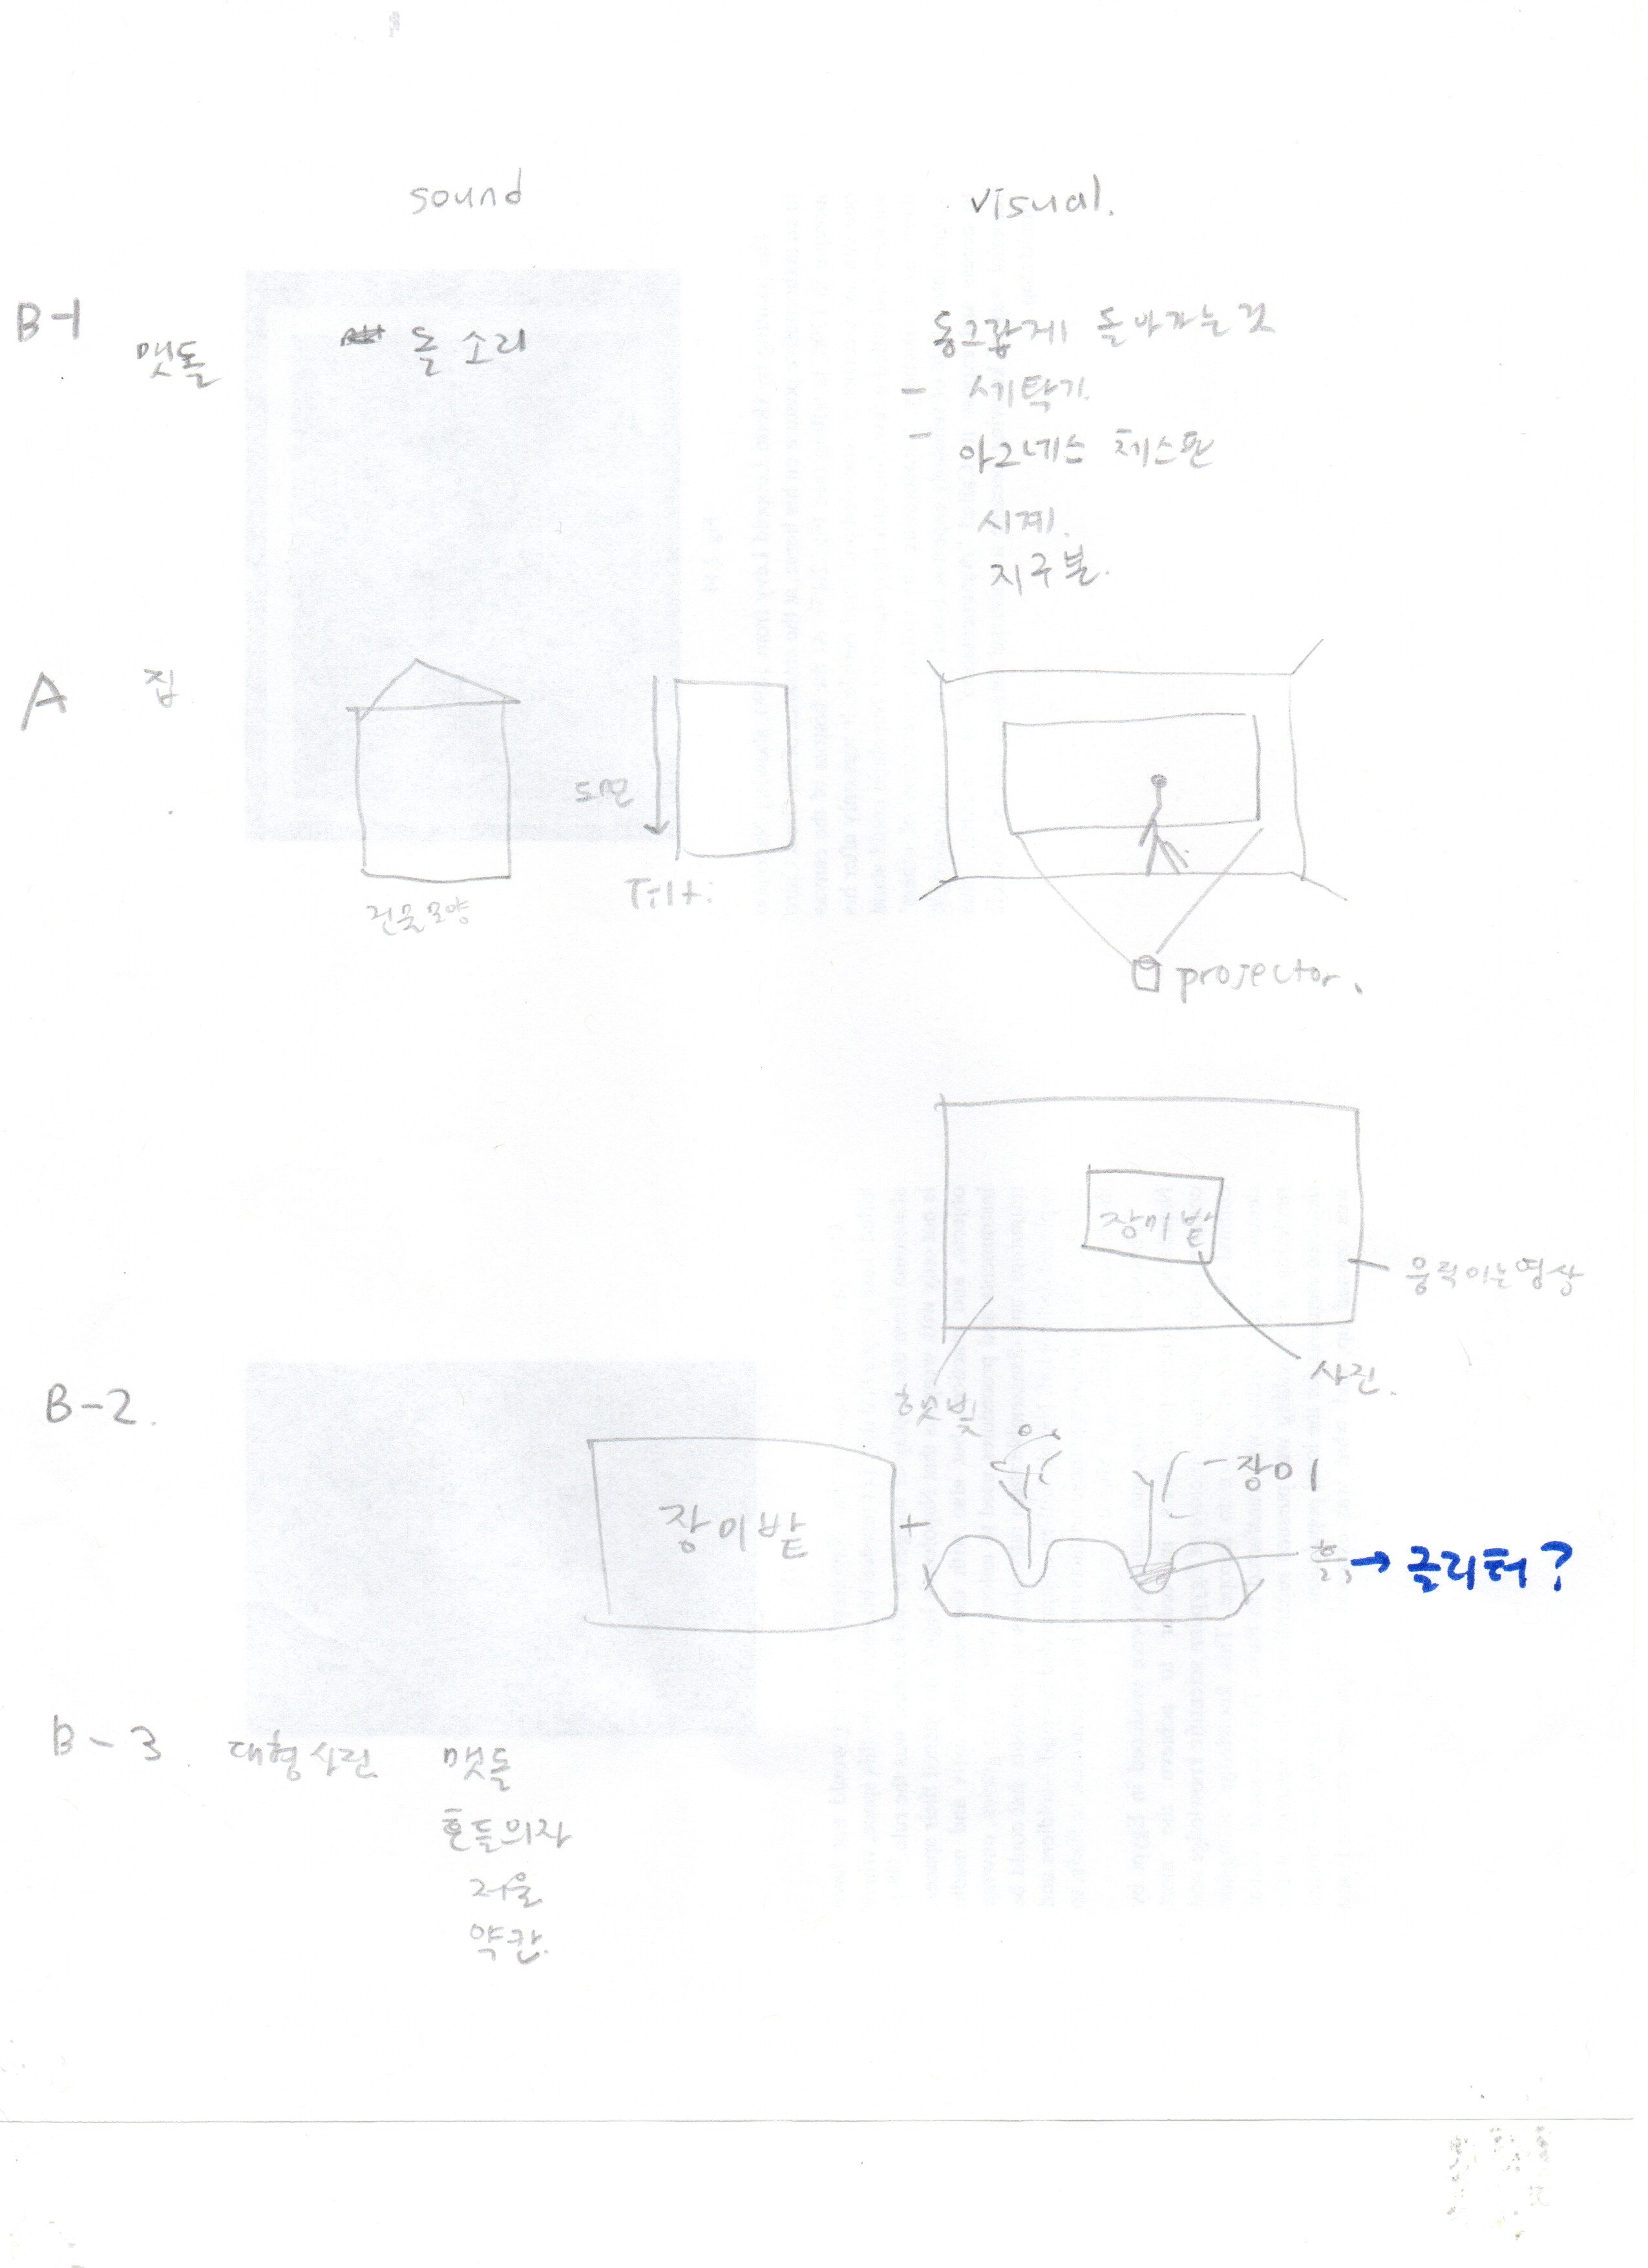 sound visual.
B-1
맷돌 돌 소리 동그랗게 돌아가는 것
- 세탁기.
- 아그네스 체스판
시계.
지구본.
A 집
도면
건물모양 Tilt.
projector.
장미밭
움직이는영상
사진.
햇빛
B-2.
장미
장미밭 +
흙 → 글리터?
B-3. 대형사진 맷돌
흔들의자
거울
약간.